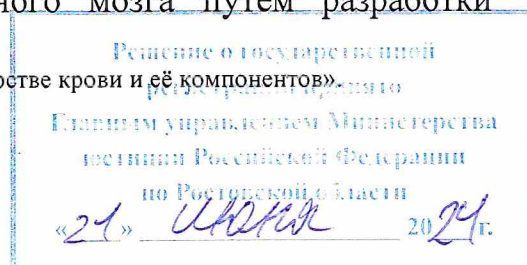 ного мозга путем разработки
Решение о государственной
рстве крови и её компонентов».
регистрации принято
Главным управлением Министерства
юстиции Российской Федерации
по Ростовской области
«21» июня 2024г.